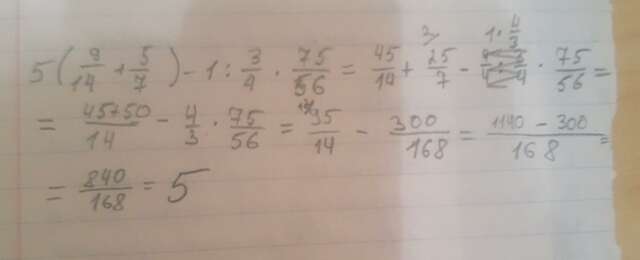 5(9/14 + 5/7) - 1 : 3/4 · 75/56 = 45/14 + 25/7 - 1 · 4/3 · 75/56 =
= 45+50/14 - 4/3 · 75/56 = 95/14 - 300/168 = 1140 - 300/168 =
= 840/168 = 5